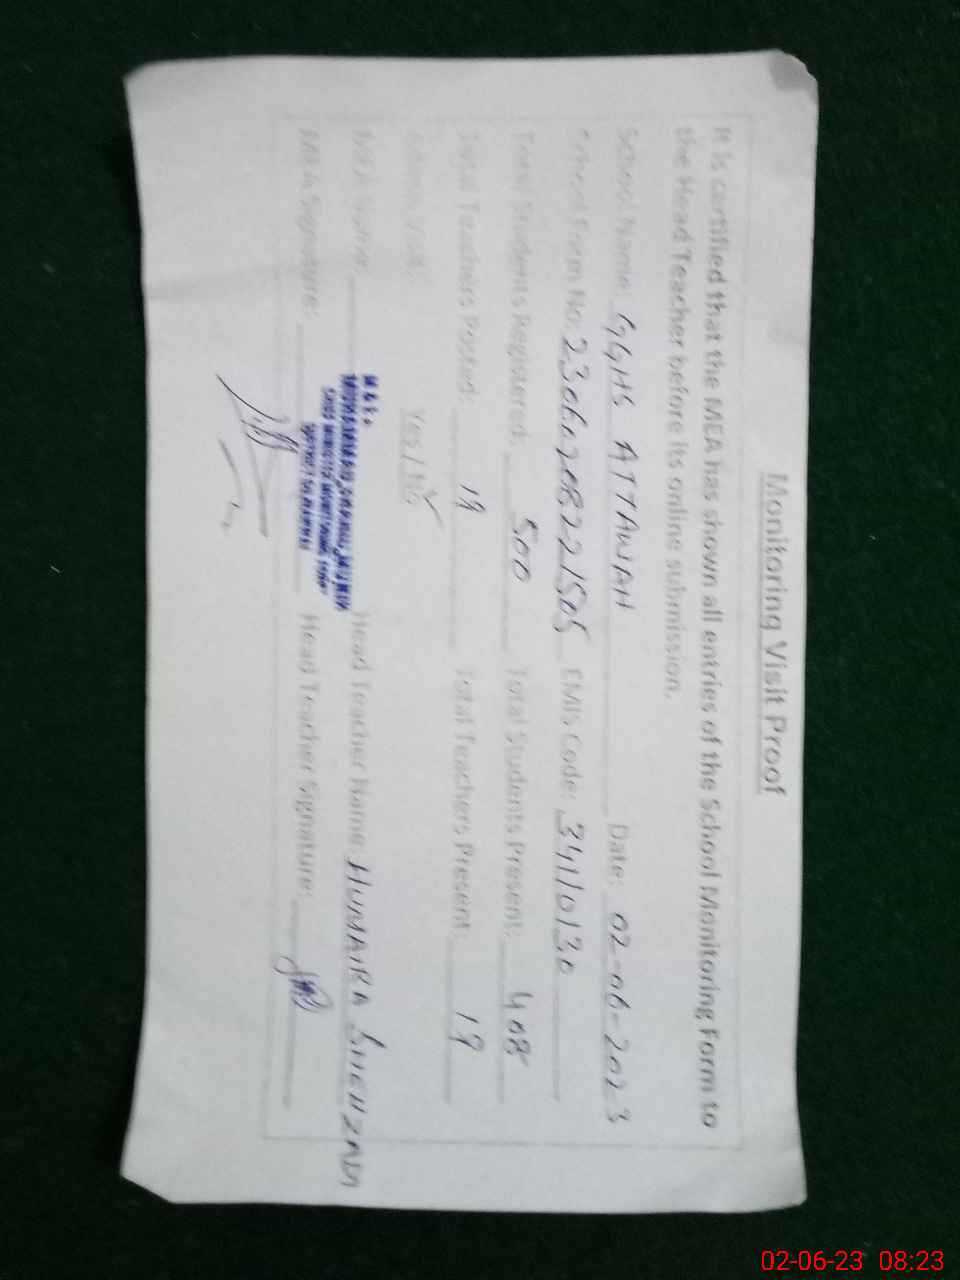 Monitoring Visit Proof
It is certified that the MEA has shown all entries of the School Monitoring Form to
the Head Teacher before its online submission.
School Name: GGHS ATTAWAH Date: 02-06-2023
School Form No: 23060208221505 EMIS Code: 34110130
Total Students Registered: 500 Total Students Present: 408
Total Teachers Posted: 19 Total Teachers Present: 19
Yes / No
MEA Name: Head Teacher Name: HUMAIRA SHEHZADI
MEA Signature: Head Teacher Signature:
02-06-23 08:23